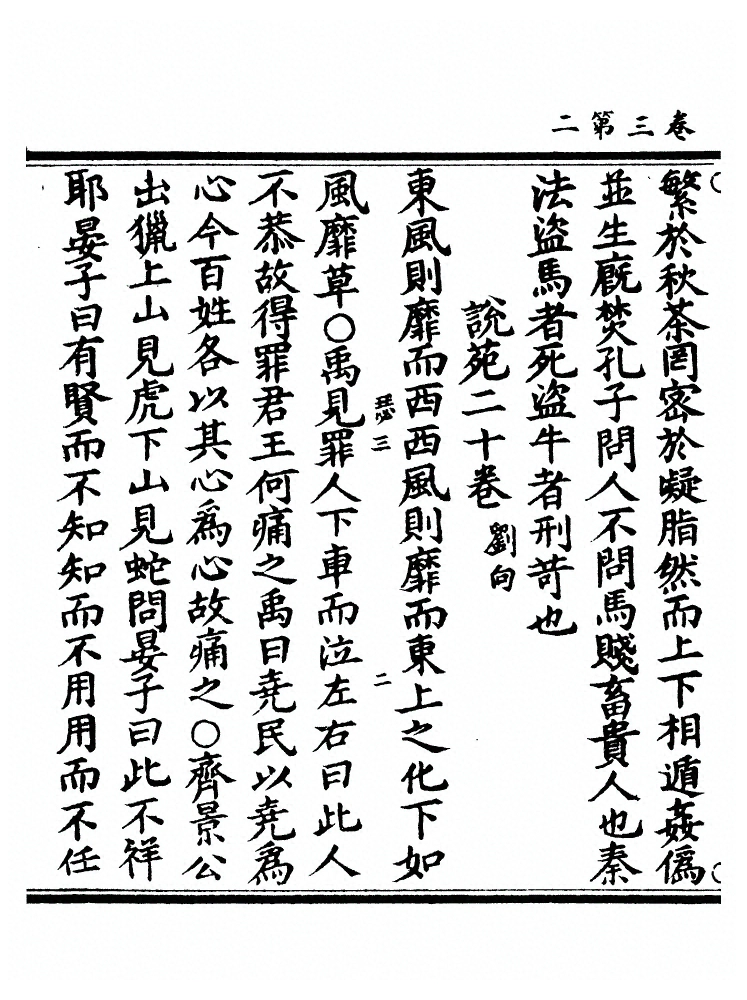 卷三第二
繁於秋荼罔密於凝脂然而上下相遁姦僞
並生廐焚孔子問人不問馬賤畜貴人也秦
法盜馬者死盜牛者刑苛也
說苑二十卷 劉向
東風則靡而西西風則靡而東上之化下如
三 二
風靡草〇禹見罪人下車而泣左右曰此人
不恭故得罪君王何痛之禹曰堯民以堯爲
心今百姓各以其心爲心故痛之〇齊景公
出獵上山見虎下山見蛇問晏子曰此不祥
耶晏子曰有賢而不知知而不用用而不任